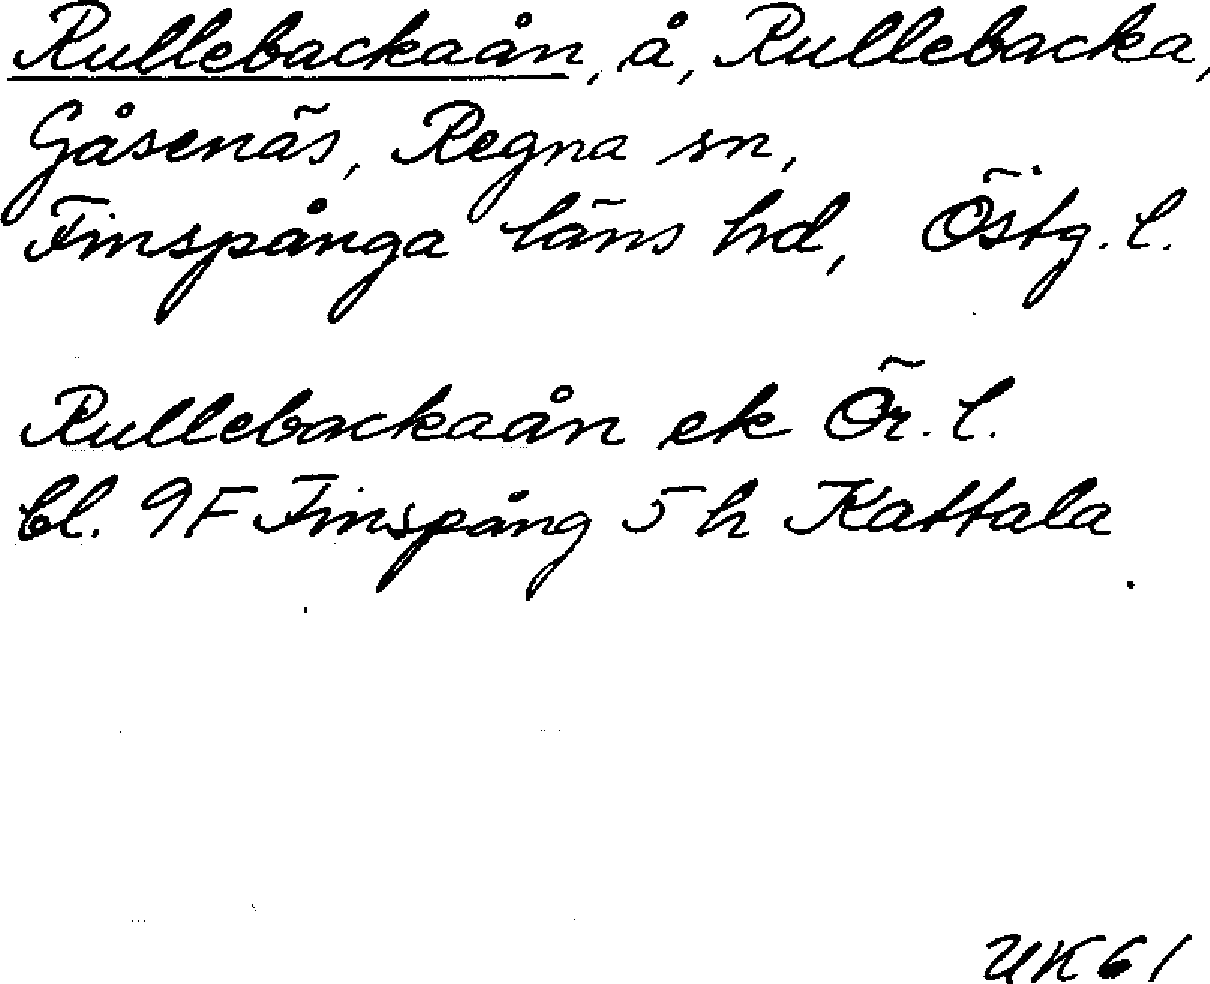 Rullebackaån, å, Rullebacka,
Gåsenäs, Regna sn,
Finspånga läns hd, Östg. l.
Rullebackaån ek Ör. l.
bl. 9F Finspång 5 h Kattala
UK61